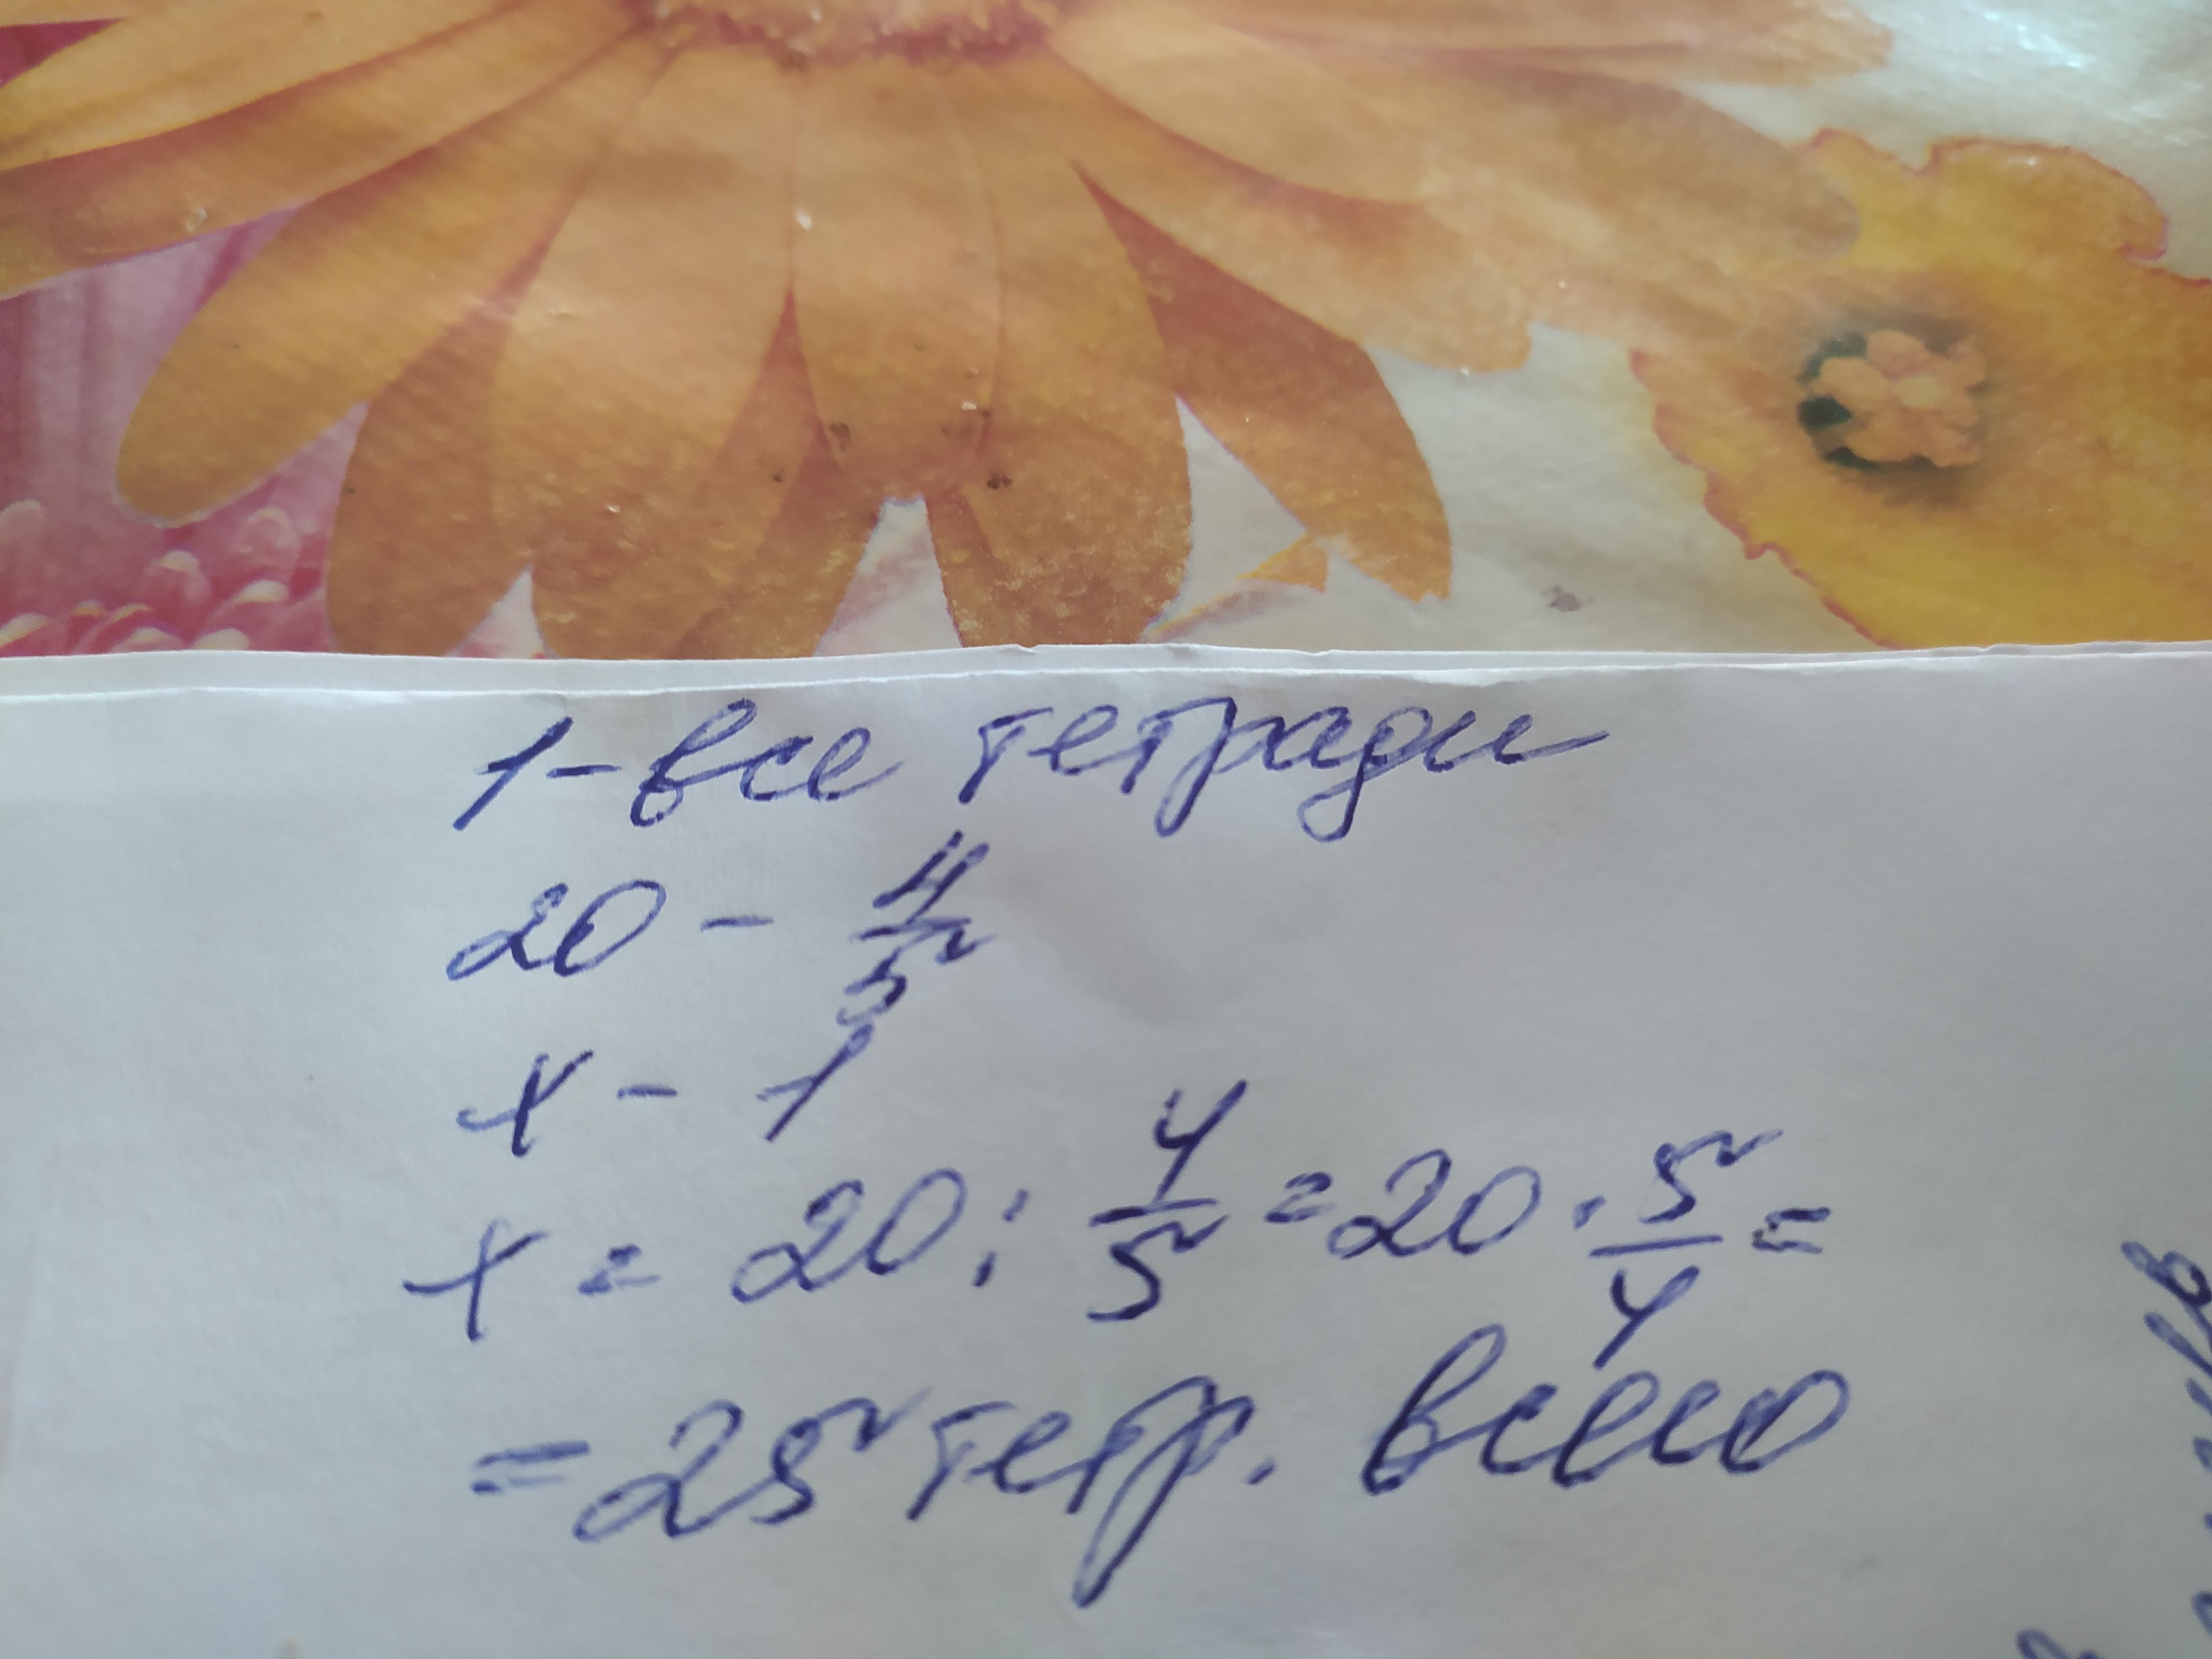 1 - все тетради
20 - 4/5
x - 1
x = 20 : 4/5 = 20 · 5/4 =
= 25 тетр. всего